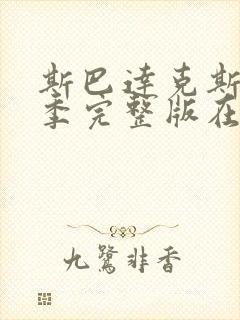 斯巴达克斯
季完整版在
九鹭非香